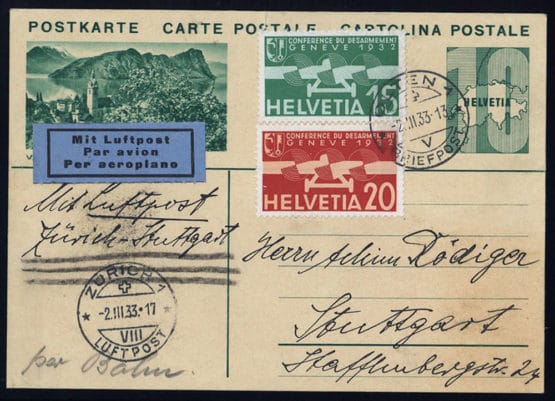 POSTKARTE CARTE POSTALE CARTOLINA POSTALE
CONFERENCE DU DESARMEMENT
GENEVE 1932
HELVETIA 15
10
HELVETIA
-2.III.33-13
V
BRIEFPOST
Mit Luftpost
Par avion
Per aeroplano
CONFERENCE DU DESARMEMENT
GENEVE 1932
HELVETIA 20
Mit Luftpost
Zürich-Stuttgart
Herrn Rödiger
Stuttgart
Stafflenbergstr. 24
ZÜRICH 1
-2.III.33-17
VIII
LUFTPOST
per Bahn.